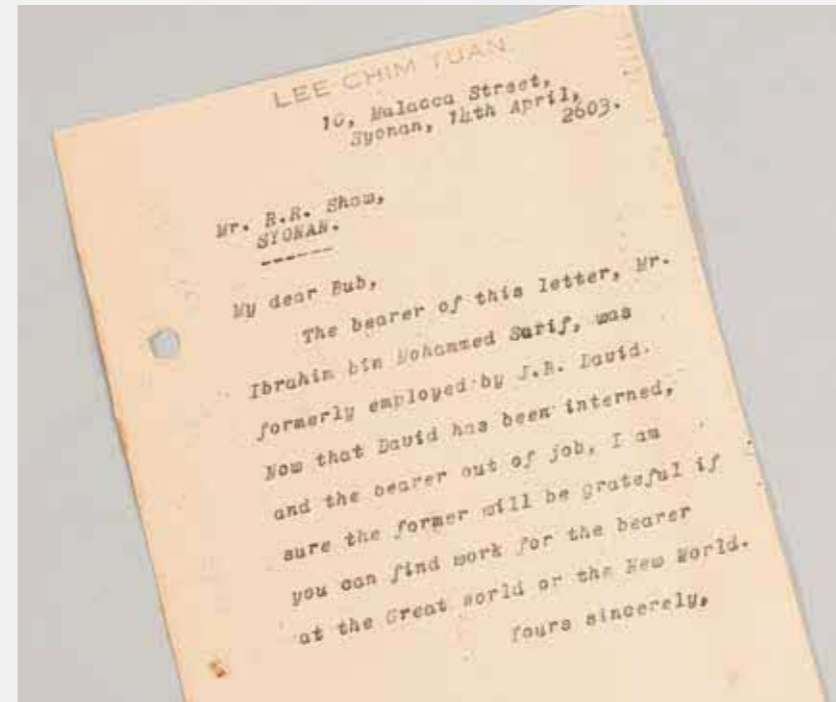 LEE CHIM TUAN.
10, Malacca Street,
Syonan, 14th April,
2603.
Mr. R.R. Shaw,
SYONAN.
------
My dear Bub,
The bearer of this letter, Mr.
Ibrahim bin Mohammed Sarif, was
formerly employed by J.B. David.
Now that David has been interned,
and the bearer out of job, I am
sure the former will be grateful if
you can find work for the bearer
at the Great World or the New World.
Yours sincerely,